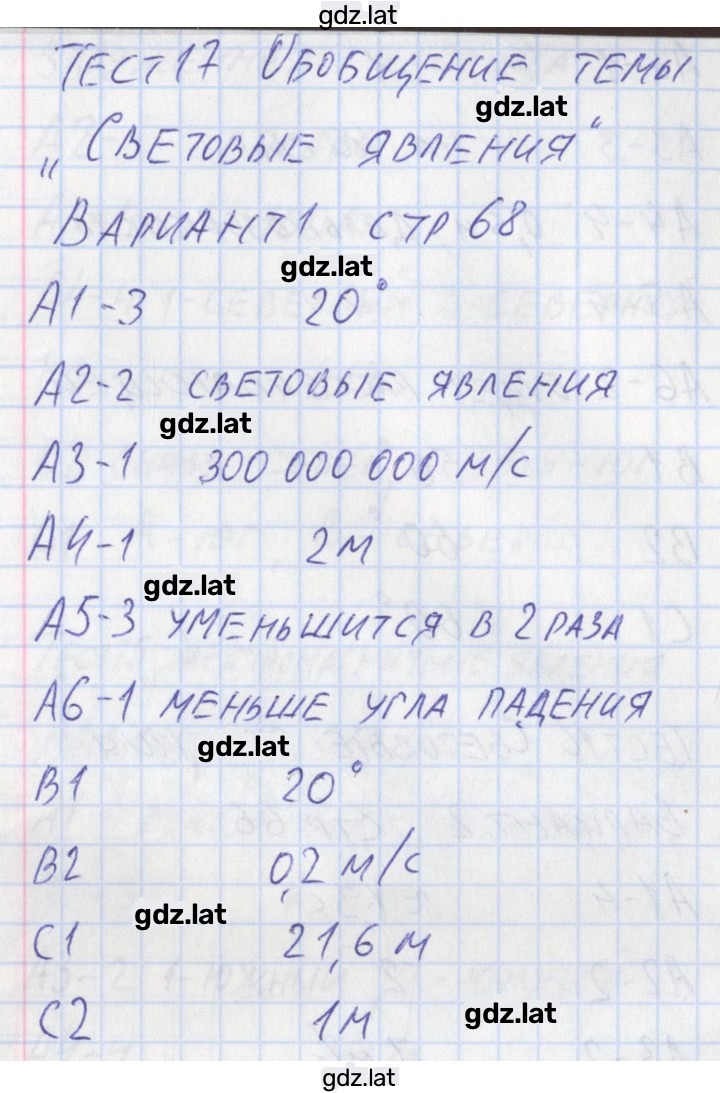 gdz.lat
Тест 17 Обобщение темы
gdz.lat
„Световые явления“
Вариант 1 стр 68
gdz.lat
А1-3 20°
А2-2 световые явления
gdz.lat
А3-1 300 000 000 м/с
А4-1 2м
gdz.lat
А5-3 уменьшится в 2 раза
А6-1 меньше угла падения
gdz.lat
В1 20°
В2 0,2 м/с
gdz.lat
С1 21,6 м
С2 1м
gdz.lat
gdz.lat